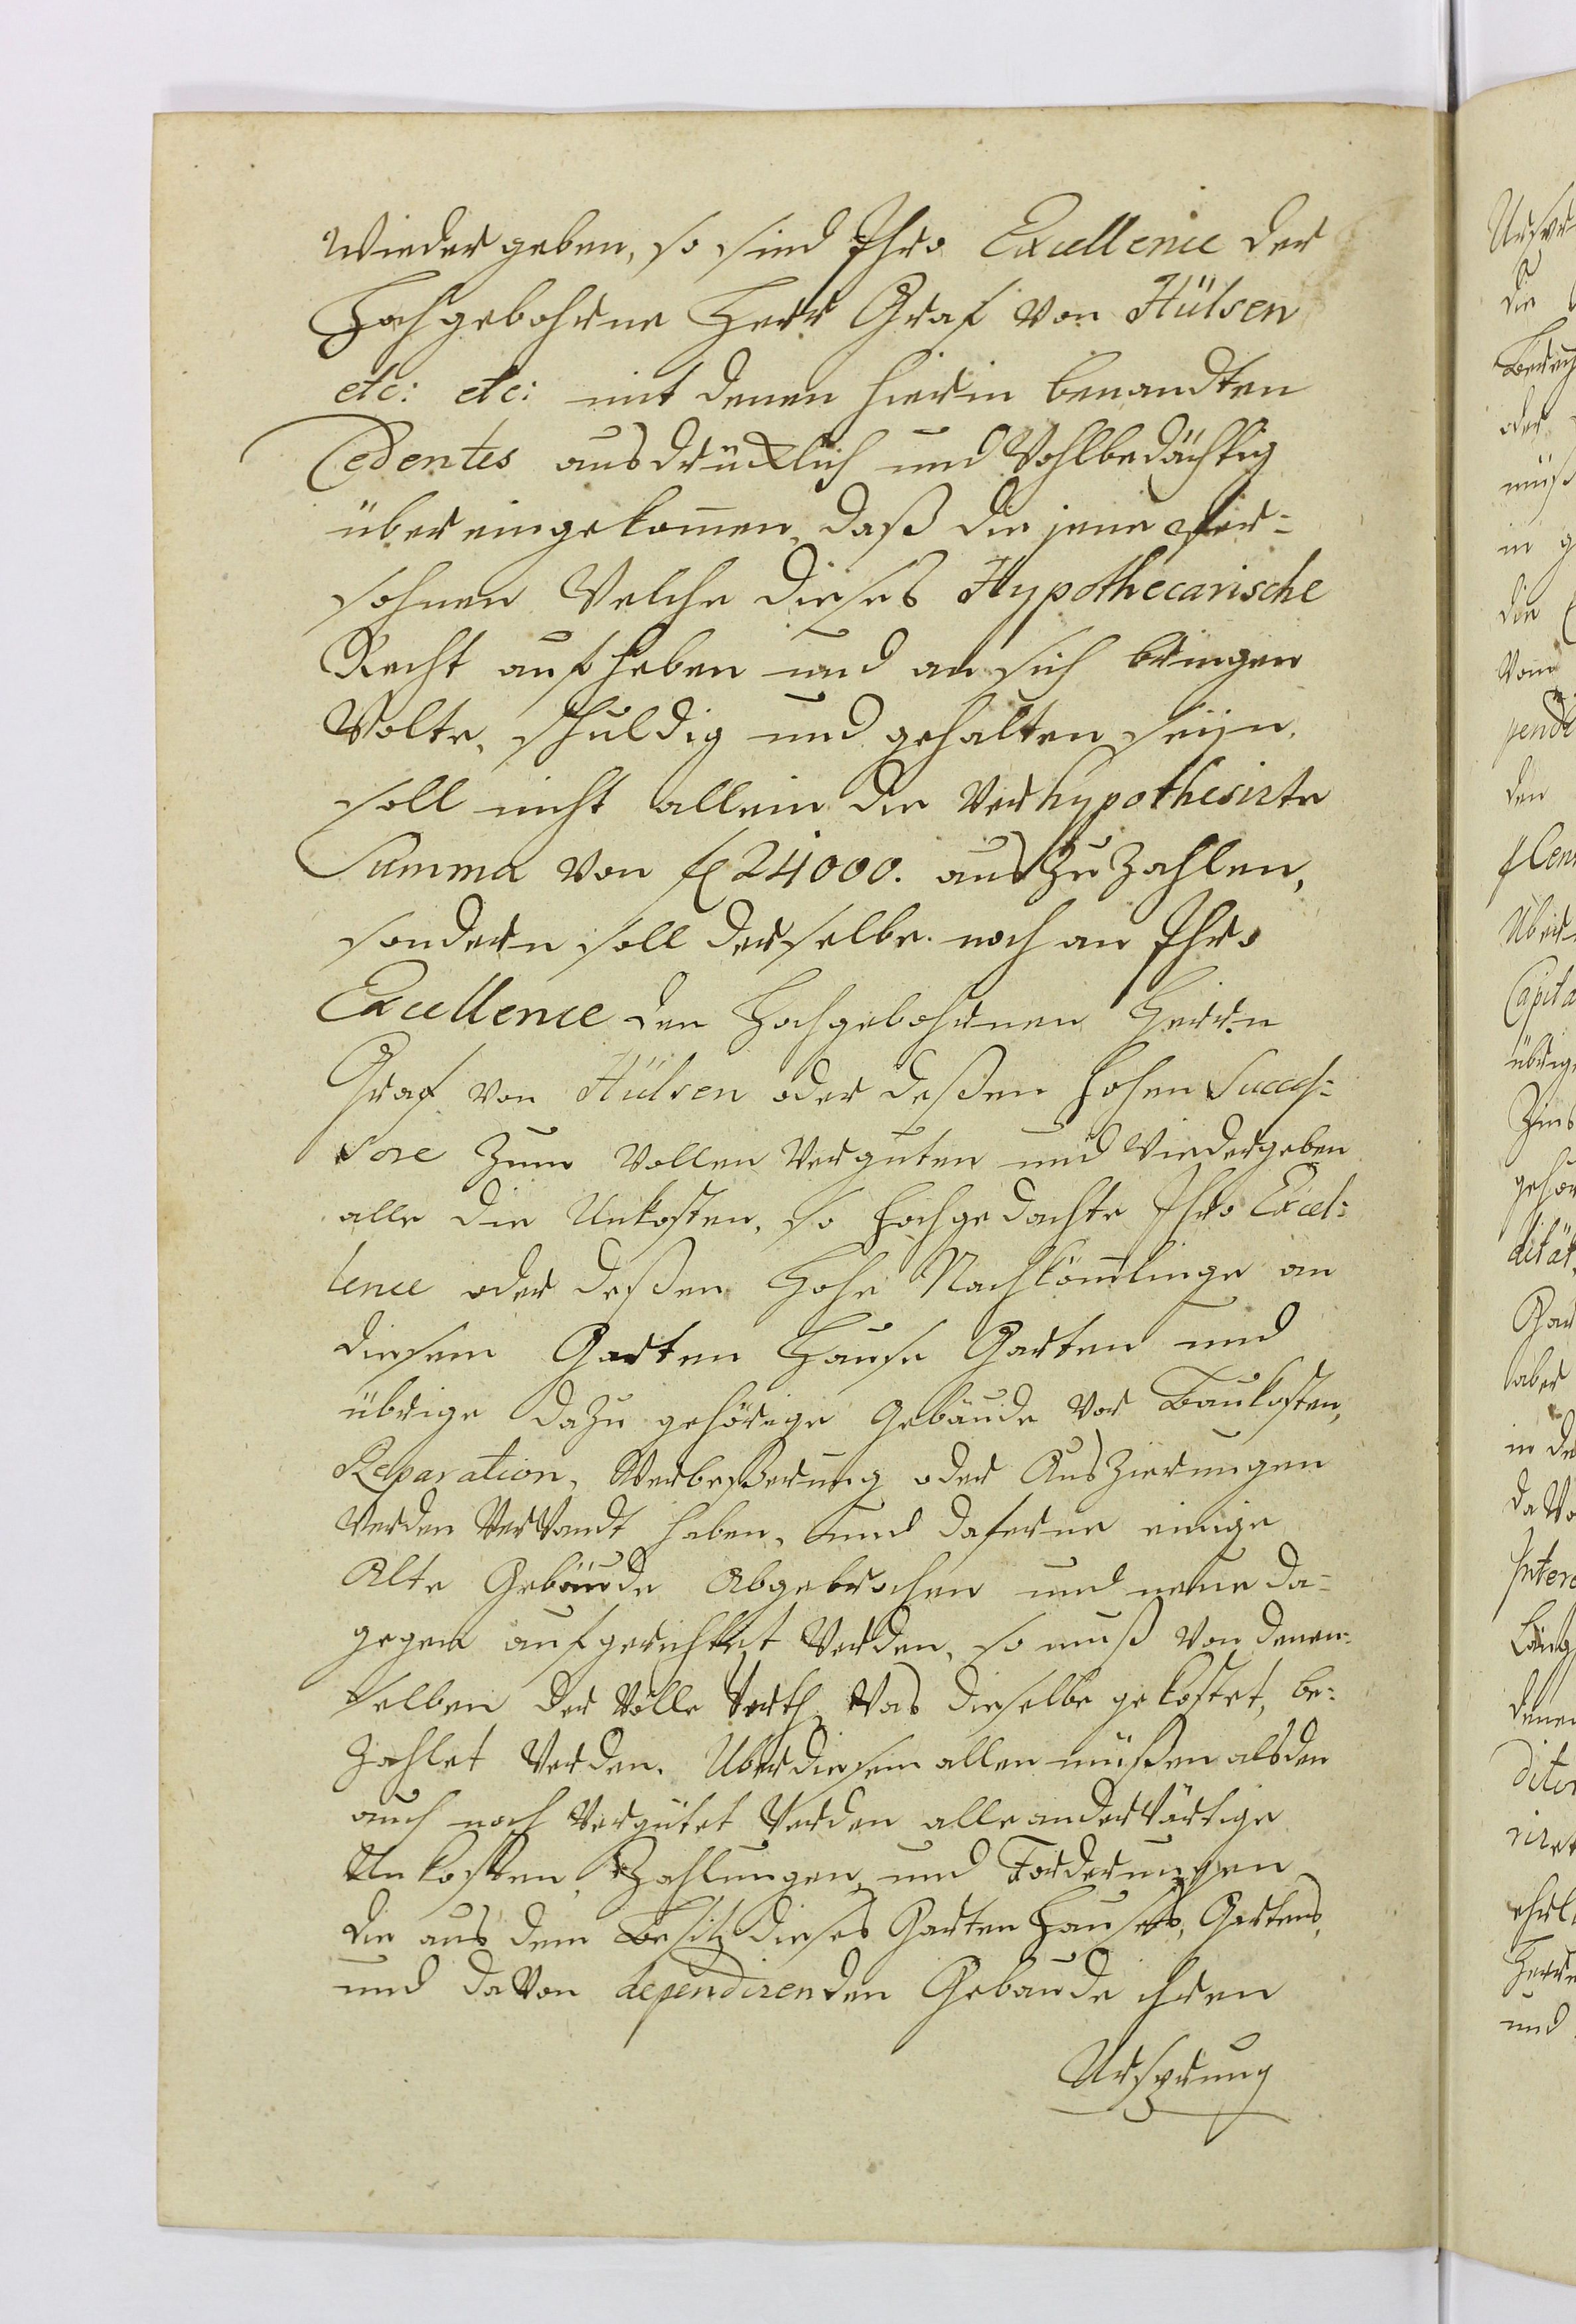 wieder geben, so sind Ihro Excellence der
Hochgebohrne Herr Graf von Hülsen
etc: etc: mit denen hierin benandten
Cedentes ausdrücklich und Wohlbedächtig
übereingekom̄en, daß die jene Per=
sohnen Welche dieses Hypothecarische
Recht aufheben und an sich bringen
Wolte, schuldig und gehalten seÿn,
soll nicht allein die Verhypothesirte
Summa von fl 24000. auszuzahlen,
sondern soll derselbe noch an Ihro
Excellence den Hochgebohrnen Herrn
Graf von Hülsen oder deßen hohen Succes=
sore zum Vollen Verguten und Wiedergeben
alle die Unkosten, so hochgedachte Ihro Excel=
lence oder deßen Hohe Nachköm̄linge an
diesem Garten Hause Garten und
übrige dazu gehörige Gebäude Vor Baukosten,
Reparation, Verbeßerung oder Auszierungen
Werden VerWandt haben, und daferne einige
Alte Gebäude Abgebrochen und neue da=
gegen aufgerichtet Werden, so muß Von denen=
selben der Völle Werth, Was dieselbe gekostet, be=
zahlet Werden. Uberdiesem allen müßen alsden
auch noch Vergütet Werden alle anderWärtige
Unkosten, Zahlungen, und Forderungen
die aus dem Besitz dieses Garten Hauses, Gartens,
und daVon dependirenden Gebäude ihren
Ursprung